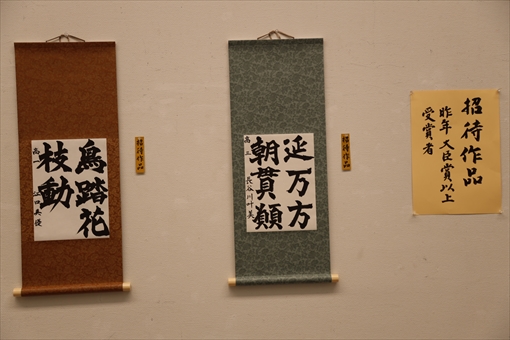 招待作品
昨年 大臣賞以上
受賞者
招待作品
延万方
朝貫顛
高三 長谷川叶美
招待作品
鳥踏花
枝動